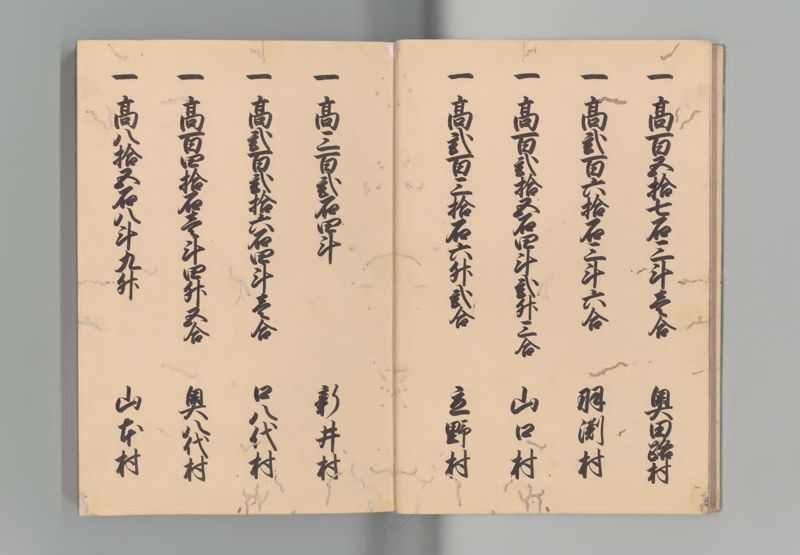 一 高百五拾七石三斗壱合 奥田路村
一 高弐百六拾石三斗六合 羽渕村
一 高百弐拾五石四斗弐升三合 山口村
一 高弐百三拾石六升弐合 立野村
一 高三百弐石四斗 新井村
一 高弐百弐拾六石四斗壱合 口八代村
一 高百四拾石壱斗四升五合 奥八代村
一 高八拾五石八斗九升 山本村